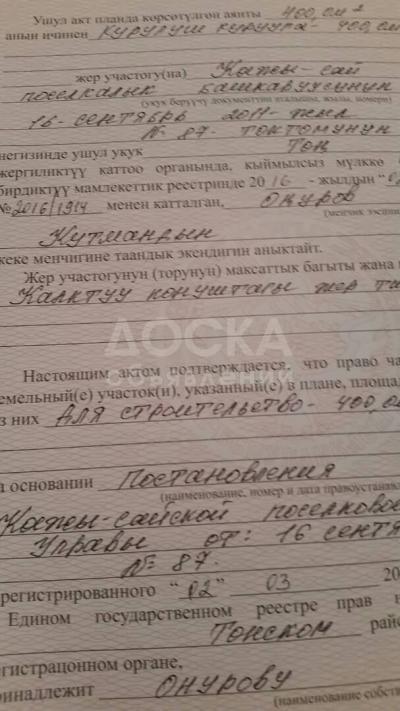 Ушул акт планда көрсөтүлгөн аянты 400,0м²
анын ичинен Курулуш курууга - 400,0м
жер участогу(на) Кажы-Сай
поселкалык башкармусунун
(укук берүүчү документтин аталышы, жылы, номери)
16-сентябрь 2011-жыл
№ 87. токтомунун
негизинде ушул укук Тоң
жергиликтүү каттоо органында, кыймылсыз мүлккө
бирдиктүү мамлекеттик реестринде 2016 - жылдын "02
№2016/1914 менен катталган, Онуров
(менчик ээсинин
Кутмандын
жеке менчигине таандык экендигин аныктайт.
Жер участогунун (торунун) максаттык багыты жана
Калктуу конуштагы жер
ДОСКА
ОБЪЯВЛЕНИЙ
Настоящим актом подтверждается, что право ча
земельный(е) участок(и), указанный(е) в плане, площад
из них Для строительство - 400,0м
на основании Постановления
(наименование, номер и дата правоустанав
Кажы-Сайской поселковое
Управы от: 16 сентя
№ 87.
зарегистрированного "02" 03 20
Едином государственном реестре прав н
Тонском рай
регистрационном органе,
принадлежит Онурову
(наименование собств